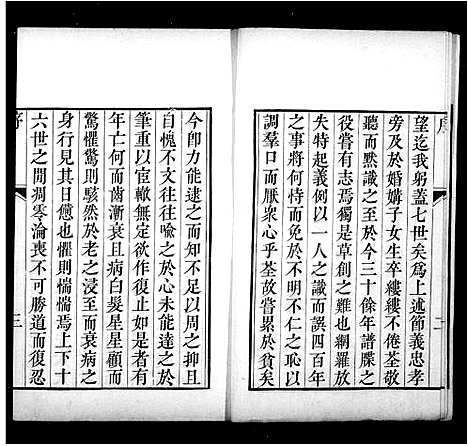 望迄我躬蓋七世矣爲上述節義忠孝
旁及於婚媾子女生卒縷縷不倦荃敬
聽而默識之至於今三十餘年譜牒之
役嘗有志焉獨是草創之難也網羅放
失特起義例以一人之識而誤四百年
之事將何恃而不恐不明不仁之恥胡
調羣口而厭衆心乎荃故嘗累於貧矣
二
今卽力能逮之而不足以周之抑且
自愧不文往往喩之於心未能達之於
筆重以宦轍無定欲作復止如是者有
年亡何而齒漸衰且病白髮星星顧而
驚懼驚則駭然於老之浸至而衰病之
身行見其日憊也懼則惴惴焉上下十
六世之間凋零淪喪不可勝道而復忍
序
三